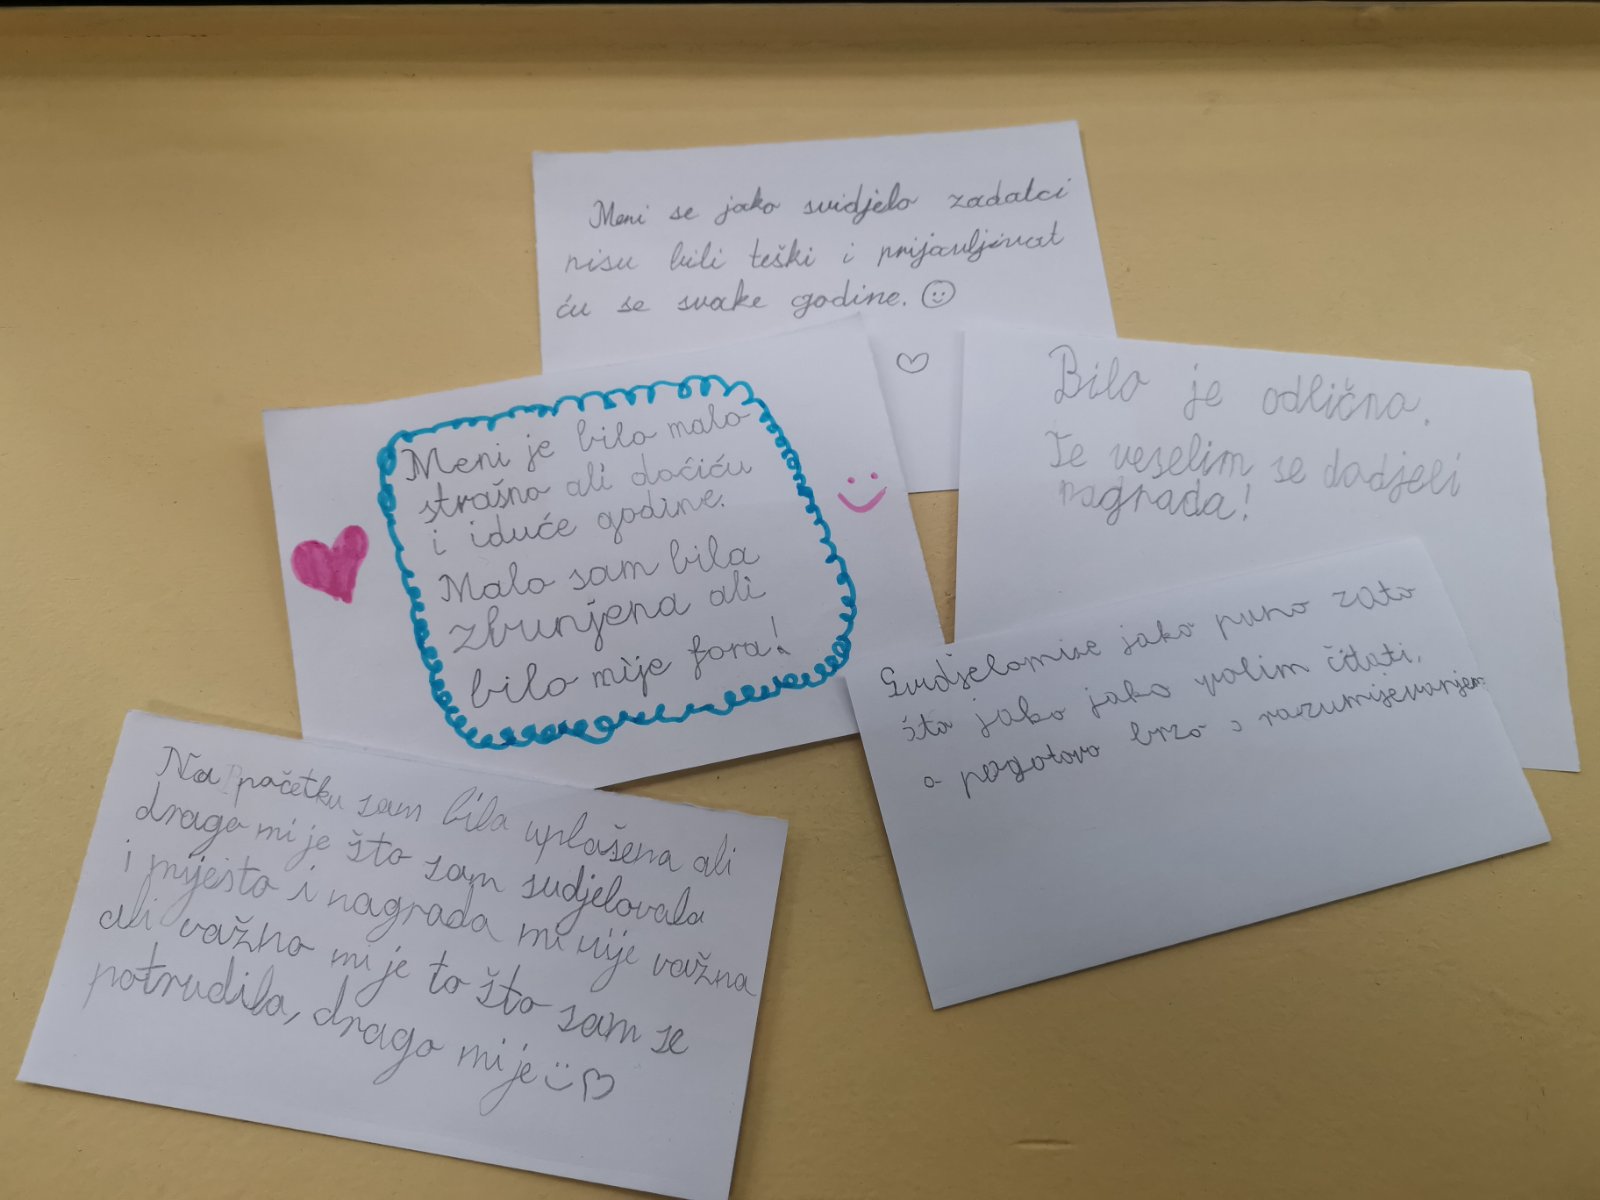 Meni se jako svidjelo zadatci
nisu bili teški i prijavljivat
ću se svake godine.
Bilo je odlično.
Te veselim se dodjeli
nagrada!
Meni je bilo malo
strašno ali doćiću
i iduće godine.
Malo sam bila
zbunjena ali
bilo mije fora!
Svidjelomise jako puno zato
što jako jako volim čitati,
a pogotovo brzo s razumijevanjem
Na početku sam bila uplašena ali
drago mi je što sam sudjelovala
i mijesto i nagrada mi nije važna
ali važno mi je to što sam se
potrudila, drago mi je